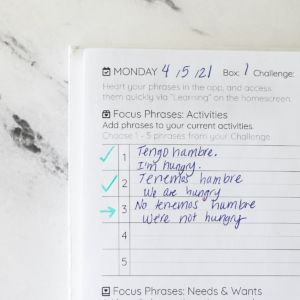 MONDAY 4/5/21 Box: 1 Challenge:
Heart your phrases in the app, and access
them quickly via "Learning" on the homescreen.
Focus Phrases: Activities
Add phrases to your current activities.
Choose 1 - 5 phrases from your Challenge
1 Tengo hambre.
I'm hungry.
2 Tenemos hambre
We are hungry
3 No tenemos hambre
We're not hungry
4
5
Focus Phrases: Needs & Wants